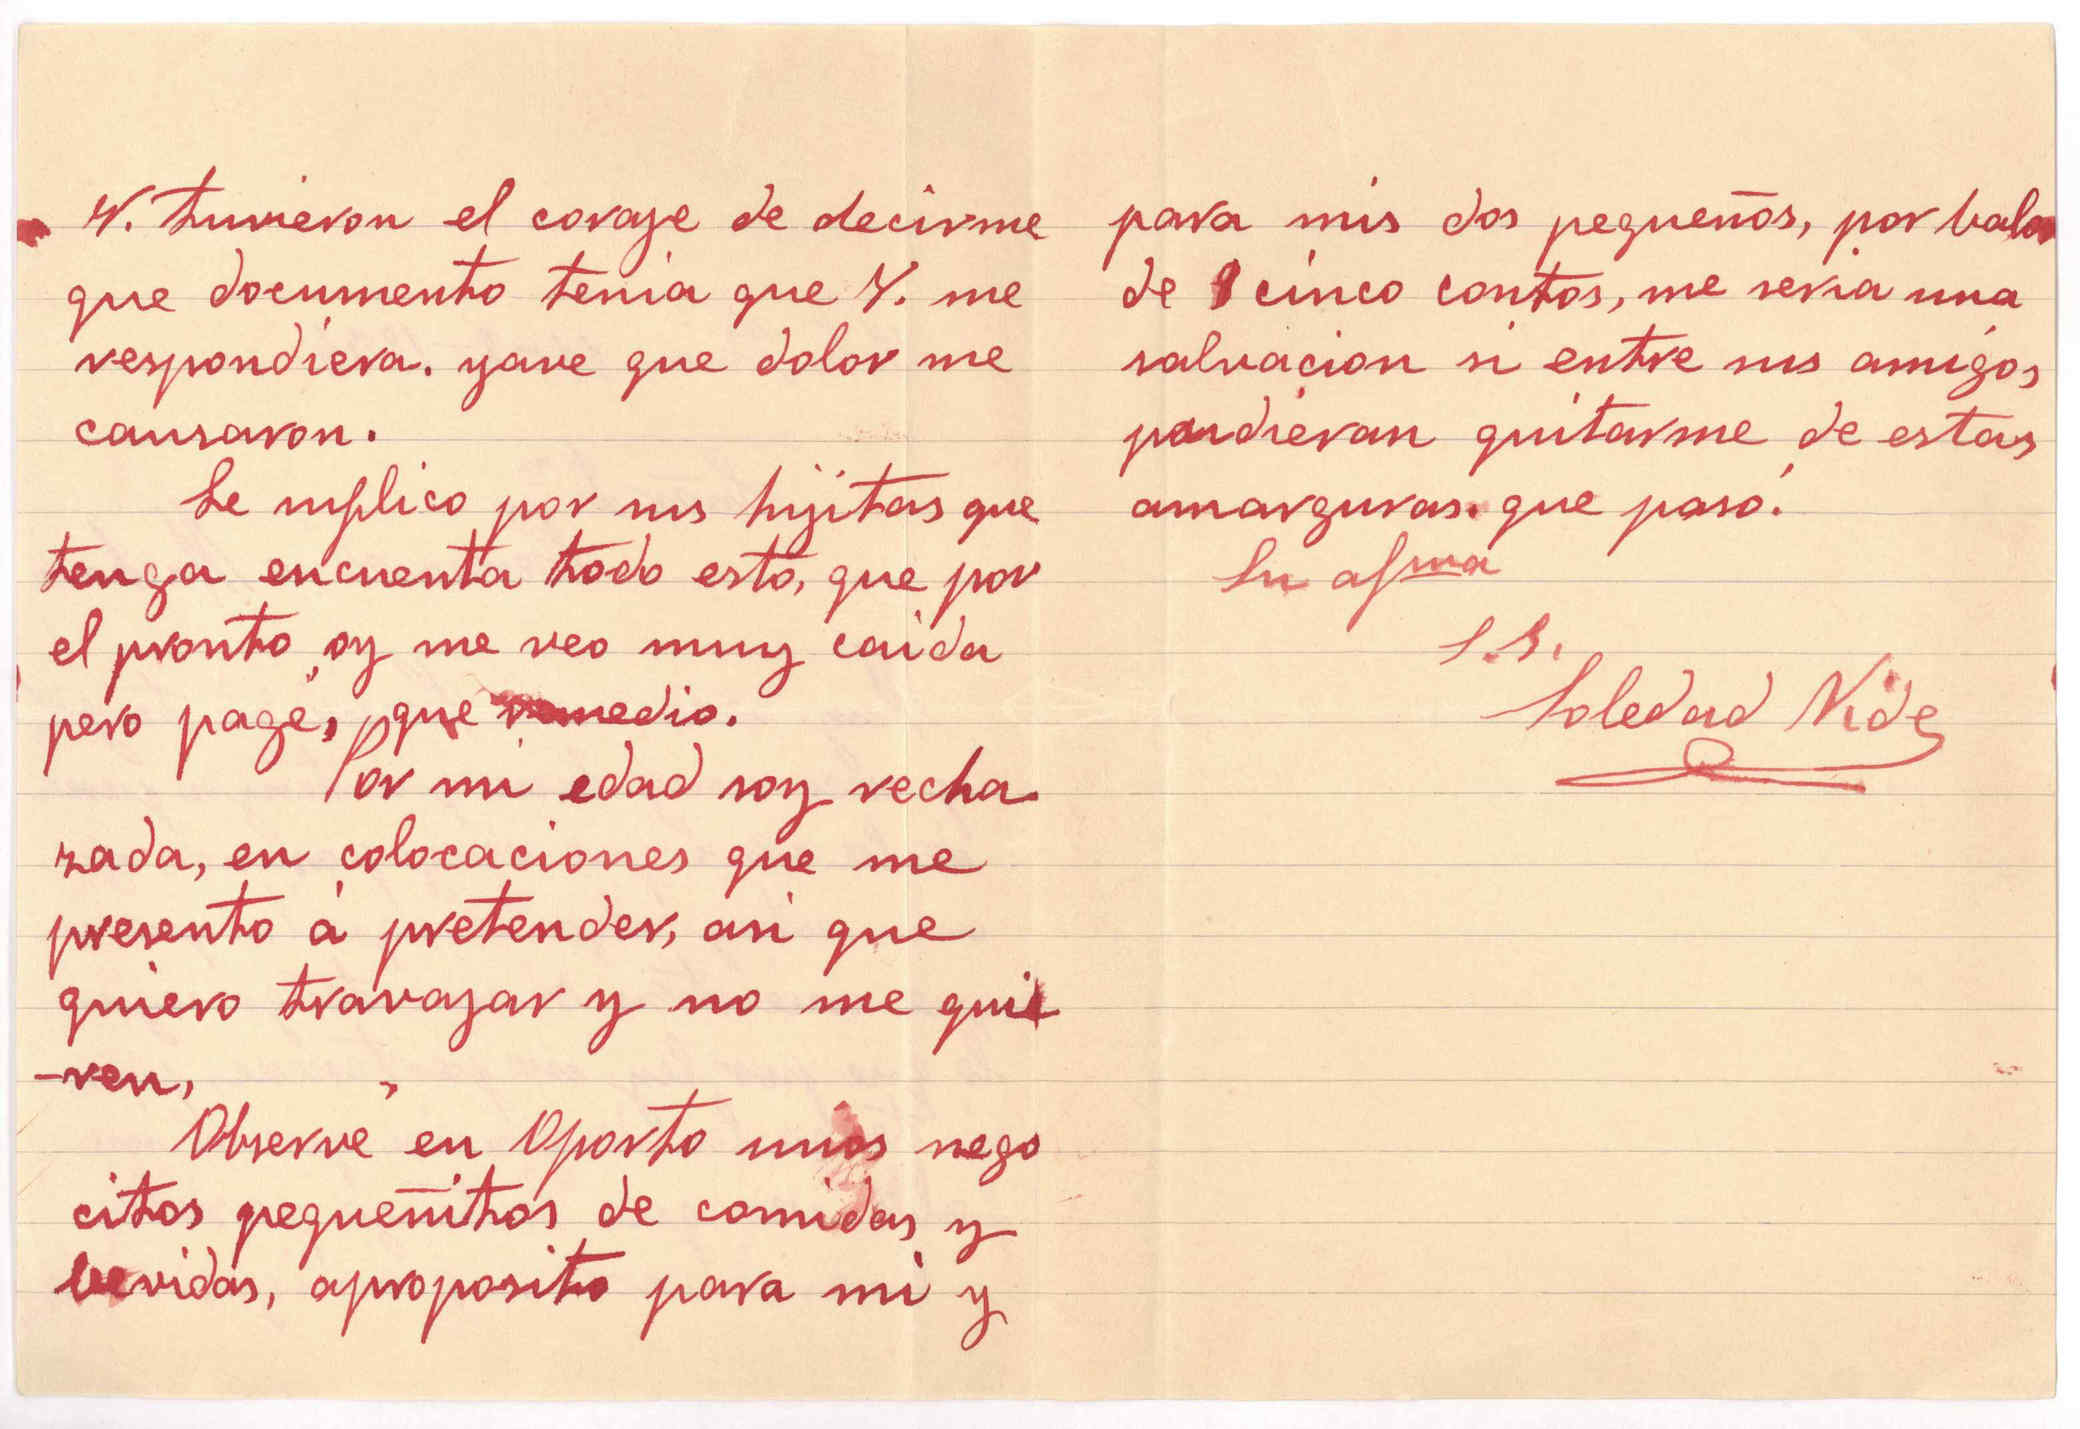 V. tuvieron el coraje de decirme
que documento tenia que V. me
respondiera. yave que dolor me
causaron.
Le suplico por sus hijitas que
tenga encuenta todo esto, que por
el pronto oy me veo muy caida
pero pagé, que remedio.
Por mi edad soy recha
zada, en colocaciones que me
presento á pretender, asi que
quiero travajar y no me quie
-ren,
Observé en Oporto unos nego
citos pequeñitos de comidas y
bevidas, aproposito para mi y
para mis dos pequeños, por valor
de cinco contos, me seria una
salvacion si entre sus amigos,
pudieran quitarme de estas
amarguras. que paso.
Su afma
S.S.
Soledad